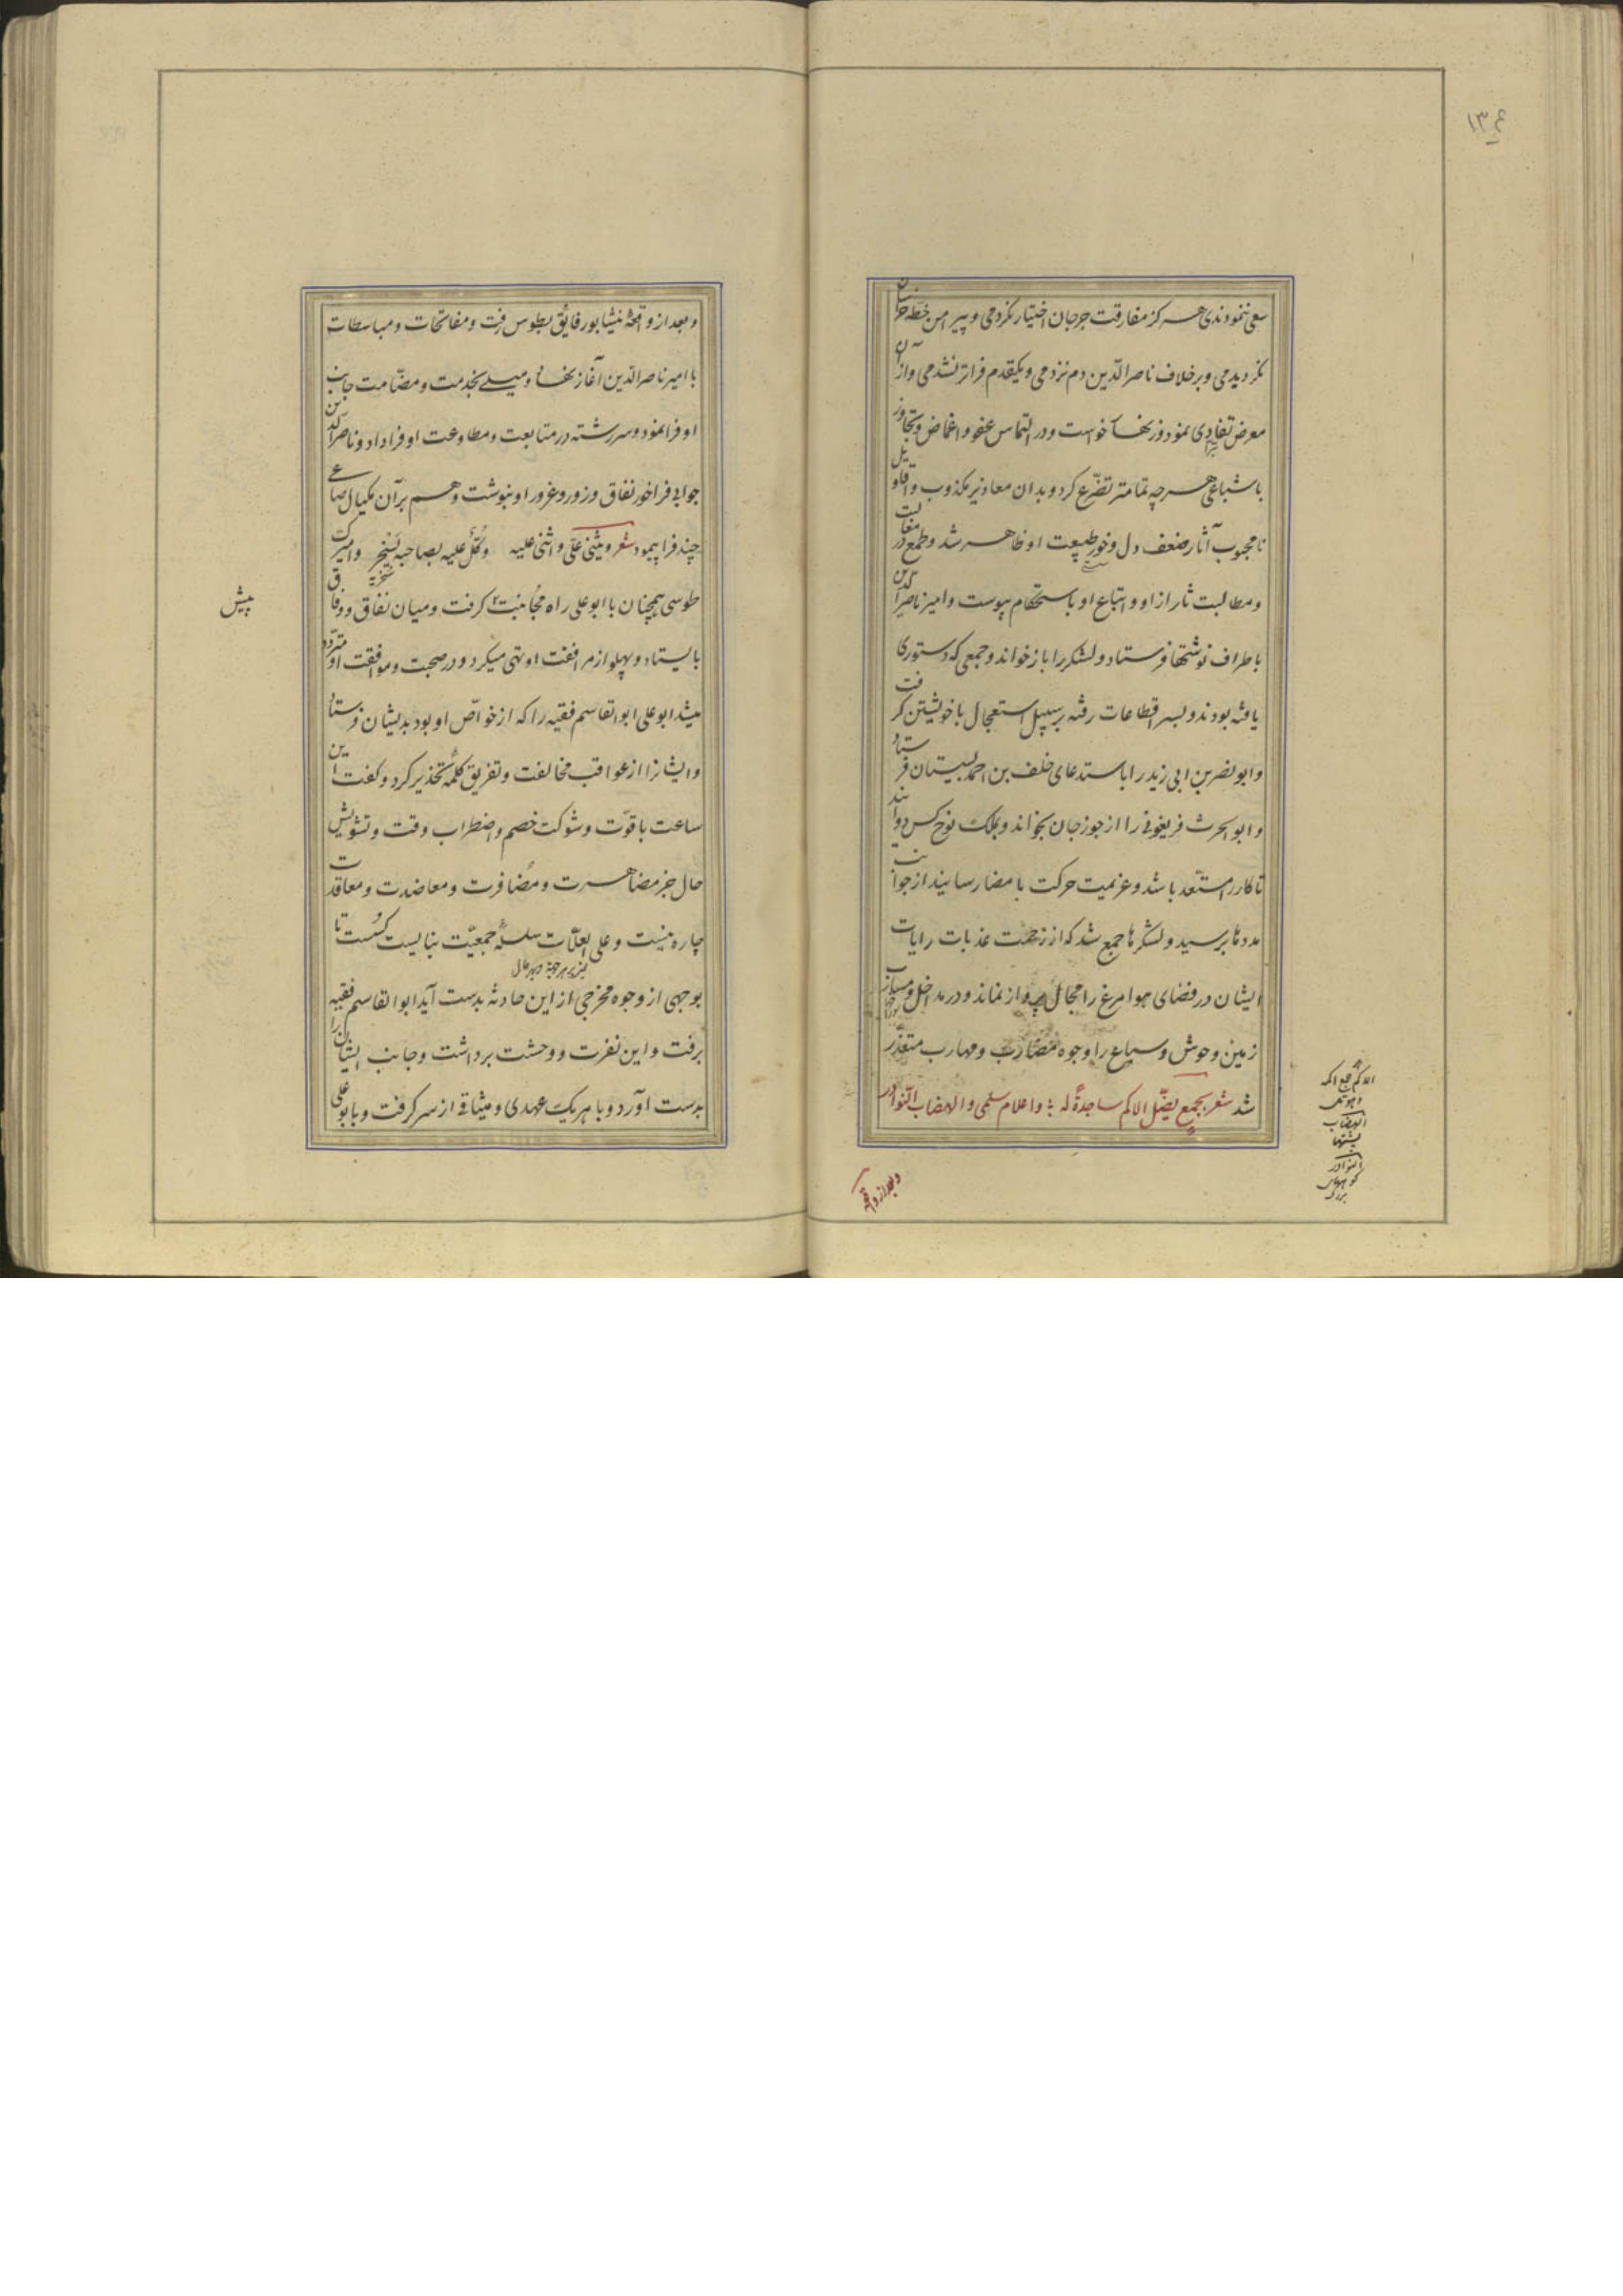 سعی ننمودندی هرگز مفارقت جرجان اختیار نکردمی و پیرامن خطّه خراسان
نگردیدمی و برخلاف ناصرالدّین دم نزدمی و یکقدم فراتر نشدمی و از آن
معرض تفادی نمود و زنهار خواست و در التماس عفو و اغماض و تجاوز
باشباعی هرچه تمامتر تضرّع کرد و بدان معاذیر مکذوب و اقاویل
نامحبوب آثار ضعف دل و خور طبیعت او ظاهر شد و طمع در مغالبت
و مطالبت ثار از او و اتباع او باستحکام پیوست و امیر ناصرالدین
باطراف نوشتها فرستاد و لشکر را باز خواند و جمعی که دستوری
یافته بودند و بسر اقطاعات رفته بر سبیل استعجال با خویشتن گرفت
و ابونصر بن ابی زید را باستدعای خلف بن احمد بسیستان فرستاد
و ابوالحرث فریغونی را از جوزجان بخواند و بملک نوح کس دوانید
تا کار را مستعد باشد و عزیمت حرکت بامضا رسانید از جوانب
مددها برسید و لشکرها جمع شد که از زحمت عذبات رایات
ایشان در فضای هوا مرغ را مجال پرواز نماند و در مداخل و مسارب
زمین وحوش و سباع را وجوه مضارب و مهارب متعذّر
شد شعر بجمع یضلّ الاکم ساجدةً له و اعلام سلمی و الهضاب النّوادر
الاکم جمع اکمه
الهضاب
پشتها
النوادر
کوههای
بزرگ
و بعد از واقعه
و بعد از واقعهٔ نیشابور فایق بطوس رفت و مفاتحات و مباسطات
با امیر ناصرالدّین آغاز نهاد و میلی بخدمت و مضّامت جانب
او فرا نمود و سررشته در متابعت و مطاوعت او فرا داد و ناصرالدّین
جوابی فراخور نفاق و زور و غرور او بنوشت و هم بر آن مکیال صاعی
چند فرا پیمود شعر ویثنی علّی و اثنی علیه وکلّ علیه بصاحبه یسخر و امیرک
سخریة
طوسی همچنان با ابوعلی راه مجانبت گرفت و میان نفاق و وفاق
بایستاد و پهلو از مرافقت او تهی میکرد و در صحبت و موافقت او متردّد
میشد ابوعلی ابوالقاسم فقیه را که از خواصّ او بود بدیشان فرستاد
و ایشانرا از عواقب مخالفت و تفریق کلمه تحذیر کرد و گفت این
ساعت با قوّت و شوکت خصم و اضطراب وقت و تشویش
حال جز مضاهرت و مضافرت و معاضدت و معاقدت
چاره نیست و علی العلّات سلسلهٔ جمعیّت نبایست گسست تا
یعنی بر هر وجه و بهر حال
بوجهی از وجوه مخرجی از این حادثه بدست آید ابوالقاسم فقیه
برفت و این نفرت و وحشت برداشت و جانب ایشان را
بدست آورد و با هریک عهدی و میثاقی از سر گرفت و بابوعلی
پیش